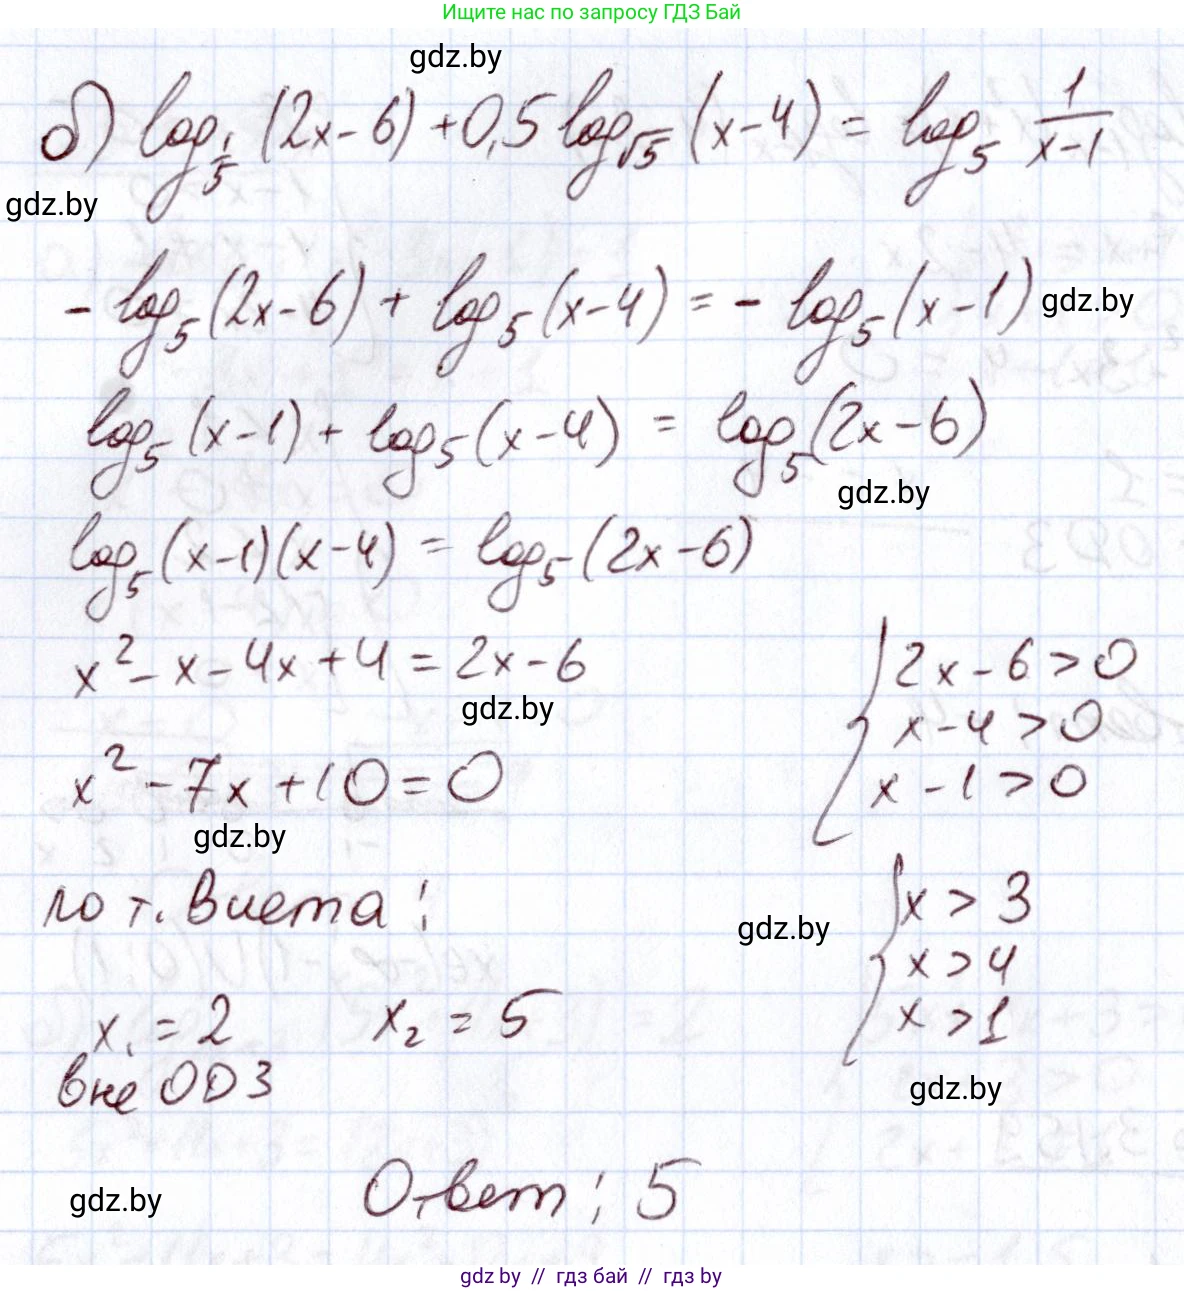 Ищите нас по запросу ГДЗ Бай
gdz.by
б) log_{1/5} (2x-6) + 0,5 log_{√5} (x-4) = log_5 1/(x-1)
gdz.by
- log_5 (2x-6) + log_5 (x-4) = - log_5 (x-1) gdz.by
log_5 (x-1) + log_5 (x-4) = log_5 (2x-6)
gdz.by
log_5 (x-1)(x-4) = log_5 (2x-6)
x² - x - 4x + 4 = 2x - 6
gdz.by
x² - 7x + 10 = 0
gdz.by
{ 2x - 6 > 0
x - 4 > 0
x - 1 > 0
по т. Виета:
gdz.by
{ x > 3
x > 4
x > 1
x₁ = 2 x₂ = 5
вне ОДЗ
gdz.by
Ответ: 5
gdz.by
gdz.by // гдз бай // гдз by